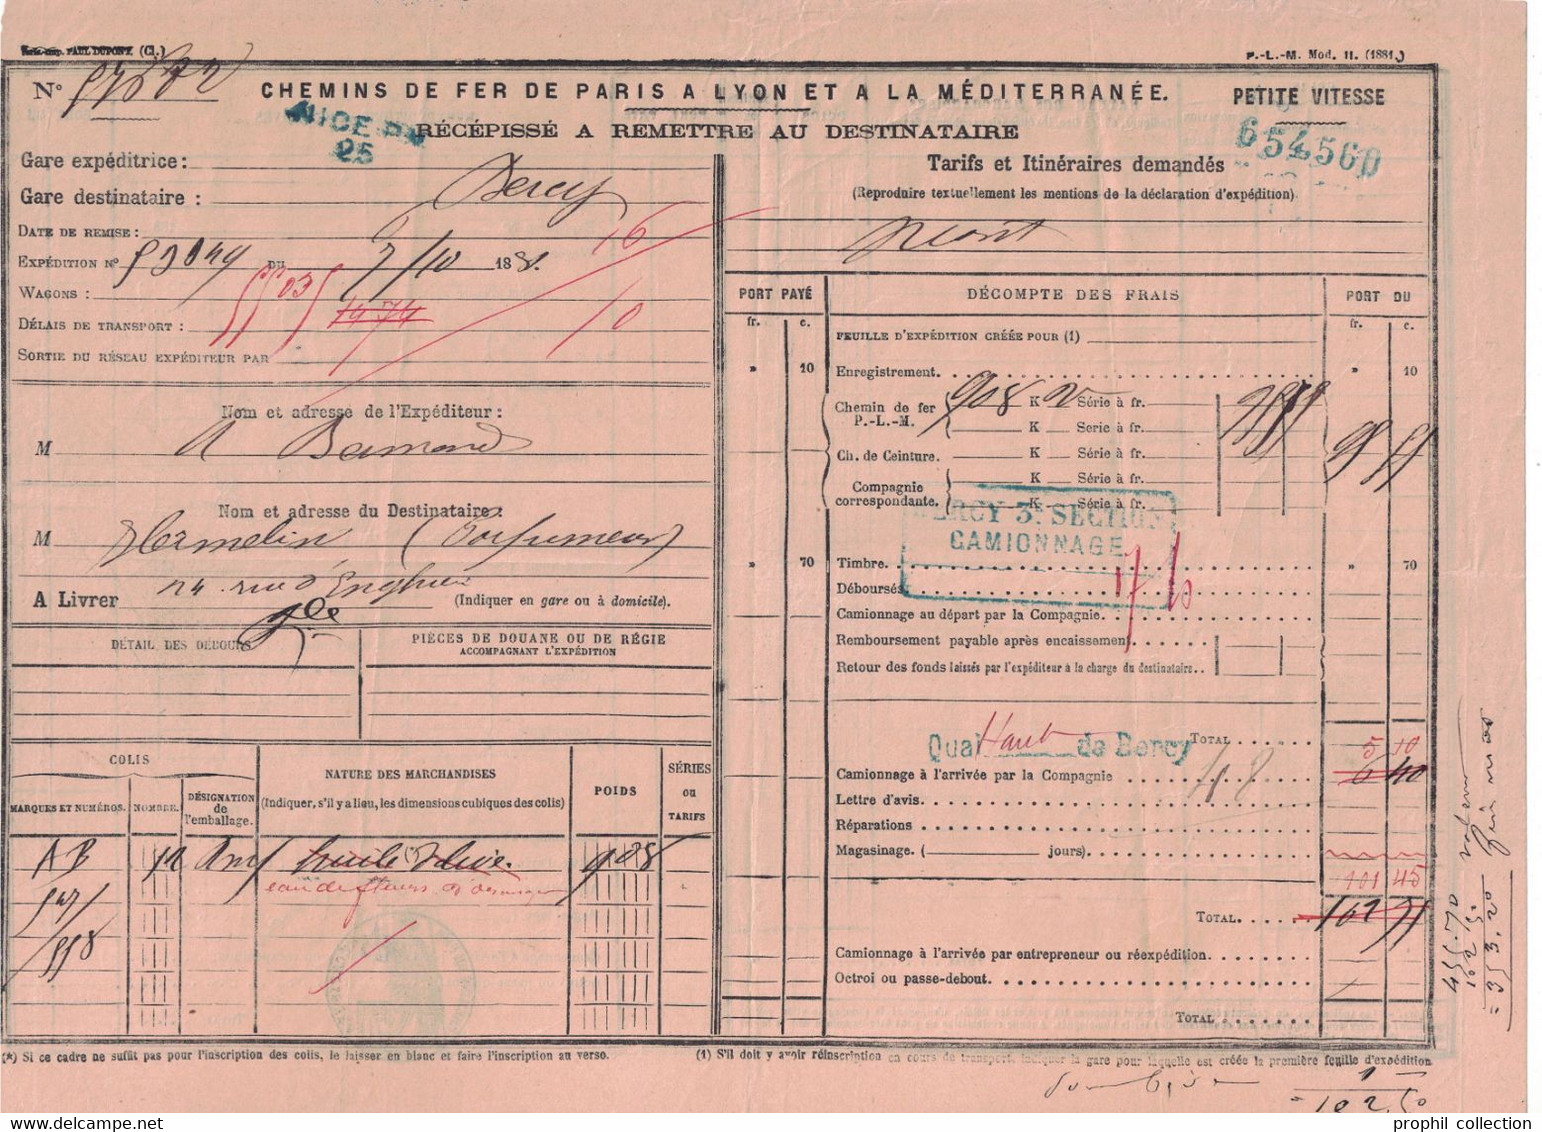 Paris-Imp. PAUL DUPONT (Cl.)
P.-L.-M. Mod. 11. (1881.)
N°
CHEMINS DE FER DE PARIS A LYON ET A LA MÉDITERRANÉE.
PETITE VITESSE
NICE
25
RÉCÉPISSÉ A REMETTRE AU DESTINATAIRE
654560
Gare expéditrice:
Gare destinataire : Bercy
Tarifs et Itinéraires demandés
(Reproduire textuellement les mentions de la déclaration d'expédition).
DATE DE REMISE:
16
EXPÉDITION N° DU 7/10 1881.
WAGONS :
DÉLAIS DE TRANSPORT : 1474 10
SORTIE DU RÉSEAU EXPÉDITEUR PAR
PORT PAYÉ
DÉCOMPTE DES FRAIS
PORT DU
fr. c.
fr. c.
FEUILLE D'EXPÉDITION CRÉÉE POUR (1)
» 10 Enregistrement. » 10
Chemin de fer P.-L.-M. 908 K Série à fr.
K Serie à fr.
Ch. de Ceinture. K Série à fr.
Compagnie correspondante. K Série à fr.
K Série à fr.
Nom et adresse de l'Expéditeur :
M A
Nom et adresse du Destinataire:
M Hermelin (Parfumeur)
24 rue d'Enghien
A LIVRER
(Indiquer en gare ou à domicile).
BERCY 3e SECTION
CAMIONNAGE
» 70 Timbre. » 70
Déboursés
Camionnage au départ par la Compagnie.
Remboursement payable après encaissement
Retour des fonds laissés par l'expéditeur à la charge du destinataire..
DÉTAIL DES DÉBOURS
PIÈCES DE DOUANE OU DE RÉGIE
ACCOMPAGNANT L'EXPÉDITION
Quai Haut de Bercy
TOTAL
5 10
Camionnage à l'arrivée par la Compagnie 6 40
Lettre d'avis.
Réparations
Magasinage. ( jours).
101 45
TOTAL.
Camionnage à l'arrivée par entrepreneur ou réexpédition.
Octroi ou passe-debout.
TOTAL
COLIS
MARQUES ET NUMÉROS.
NOMBRE.
DÉSIGNATION de l'emballage.
NATURE DES MARCHANDISES
(Indiquer, s'il y a lieu, les dimensions cubiques des colis)
POIDS
SÉRIES ou TARIFS
AB huile d'olive. 908
eau de fleurs d'oranger
547/
558
455.70
102.50
= 353.20
(*) Si ce cadre ne suffit pas pour l'inscription des colis, le laisser en blanc et faire l'inscription au verso.
(1) S'il doit y avoir réinscription en cours de transport, indiquer la gare pour laquelle est créée la première feuille d'expédition
1
= 102.50
prophil collection